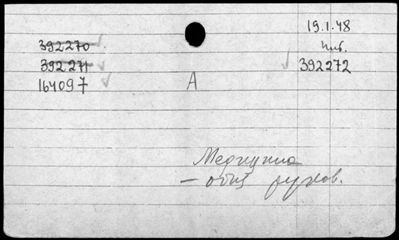 19.1.48
инв.
392270
392271
392272
164097
А
Медицина
– общ. руков.